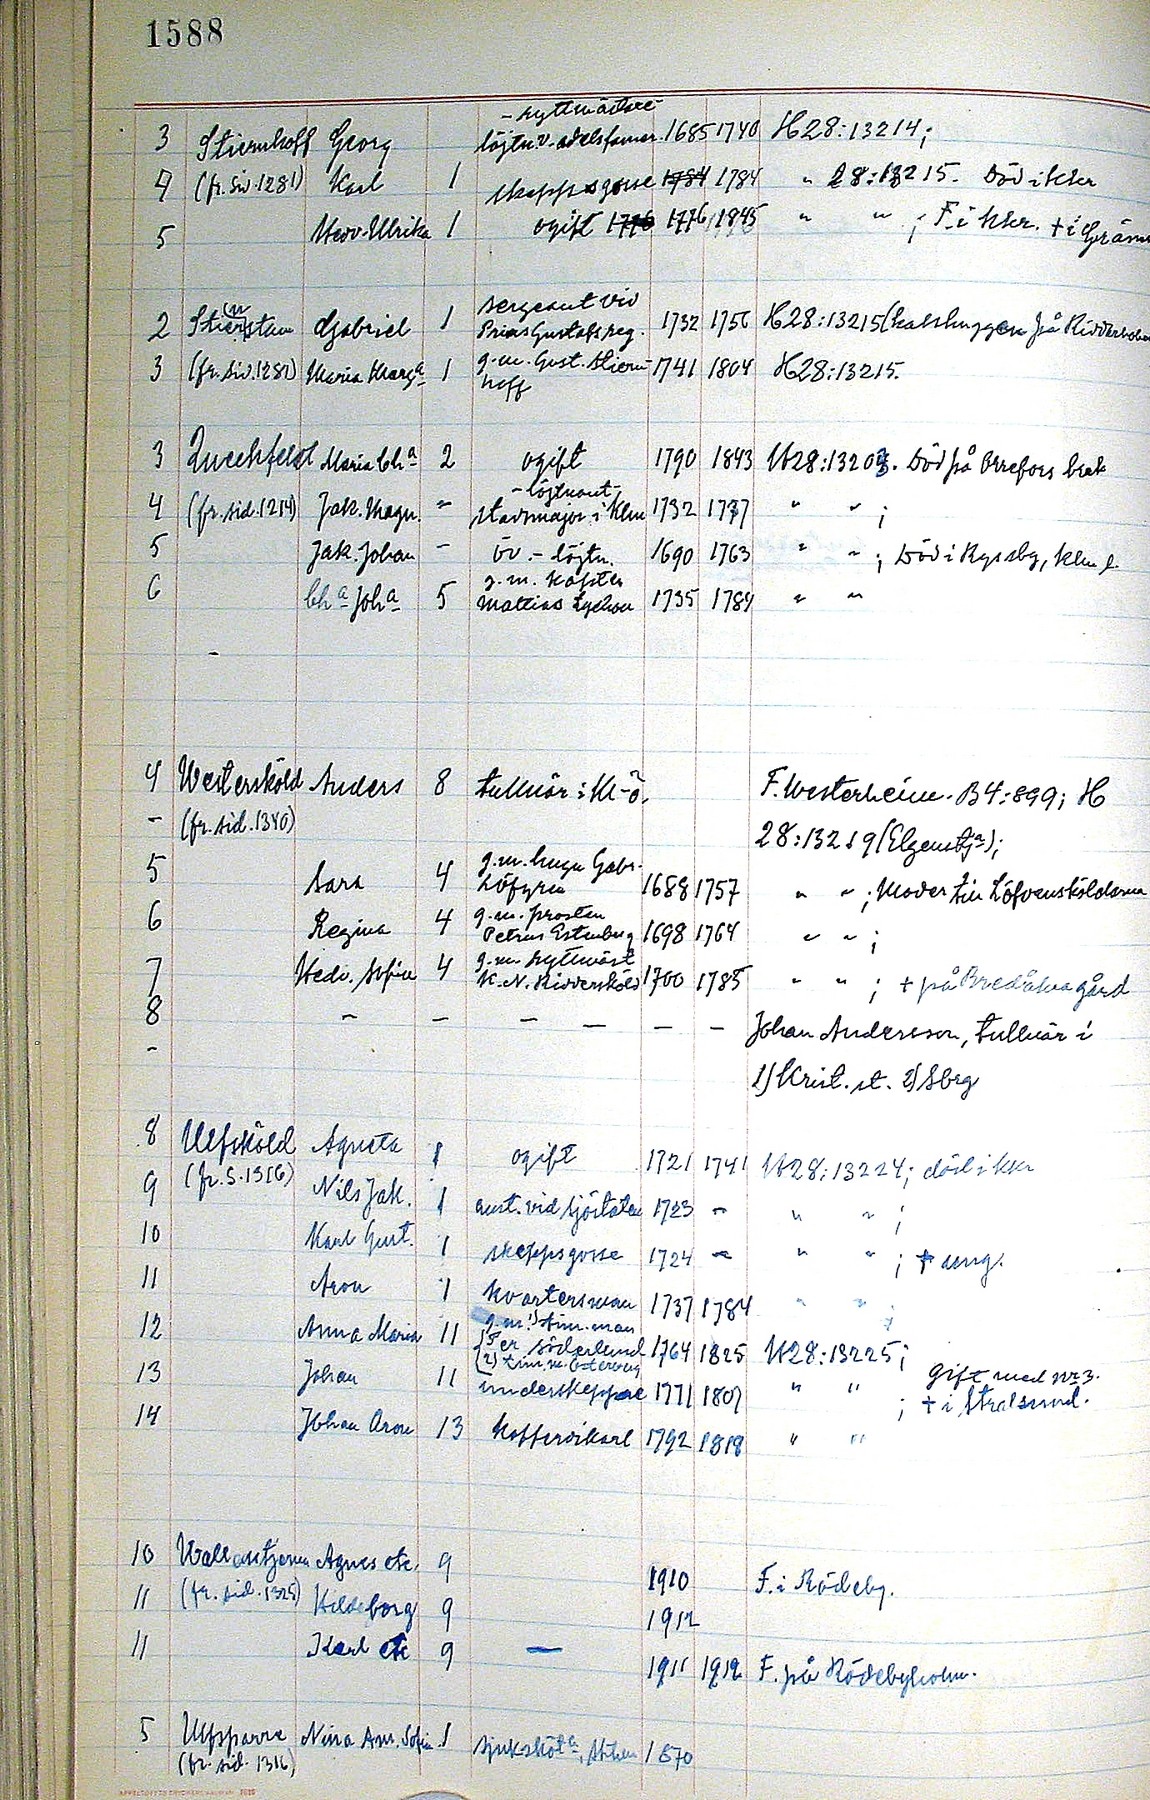 1588
- ryttmästare
3 Stiernhoff Georg löjtn. v. adelsfanan. 1685 1740 H28:13214;
4 (fr. sid. 1281) Karl 1 skeppsgosse 1784 1784 " 28:13215. Död i Kkr
5 Hedv. Ulrika 1 ogift 1776 1776 1845 " " ; F. i Kkr. † i
sergeant vid
2 Stiernstam Gabriel 1 Prins Gustafs reg. 1732 1756 H28:13215 (halshuggen på
3 (fr. sid. 1282) Maria Marg:a 1 g.m. Gust. Stiern- 1741 1804 H28:13215.
hoff
3 Queckfeldt Maria Ch:a 2 ogift 1790 1843 H28:13203. Död på Orrefors bruk
- löjtnant,
4 (fr. sid. 1214) Jak. Magn. - stadsmajor i Klm 1732 1737 " " ;
5 Jak. Johan - öv.-löjtn. 1690 1763 " " ; Död i Ryssby, Klm l.
g.m. kapten
6 Ch:a Joh:a 5 Mattias 1735 1784 " "
-
4 Westersköld Anders 8 tullnär i Kr-ö. F. Westerheim. B4:899; H
- (fr. sid. 1340) 28:13219 (Elgenstj:a);
g.m. Gabr.
5 Sara 4 Löfgren 1688 1757 " " ; Moder till Löfvensköldarna
g.m. prosten
6 Regina 4 Petrus Estenberg 1698 1764 " " ;
g.m. ryttmäst
7 Hedv. Sofia 4 K. N. Riddersköld 1700 1785 " " ; † på Bredåkra gård
8 - - - - - - Johan Andersson, tullnär i
- 1) Krist. st. 2) Sbrg
8 Ulfsköld Agneta 1 ogift 1721 1741 H28:13224; död i Kkr
(fr. s. 1316)
9 Nils Jak. 1 anst. vid sjöstaten 1723 - " " ;
10 Karl Gust. 1 skeppsgosse 1724 - " " ; † ung.
11 Aron 1 kvartersman 1737 1784 " " ;
g.m. 1) tim.man
12 Anna Maria 11 Per Söderlund 1764 1825 H28:13225;
2) tim.m. gift med nr 3.
13 Johan 11 underskeppare 1771 1807 " " ; † i Stralsund.
14 Johan Aron 13 koffervikarl 1792 1818 " "
10 Wallenstjerna Agnes etc. 9 1910 F. i Rödeby.
11 (fr. sid. 1325) Hildeborg 9 1912
11 Karl etc 9 — 1911 1912 F. på Rödebyholm.
5 Ulfsparre Nina Am. Sofia 1 sjuksköt:a, Sthlm 1870
(fr. sid. 1316)